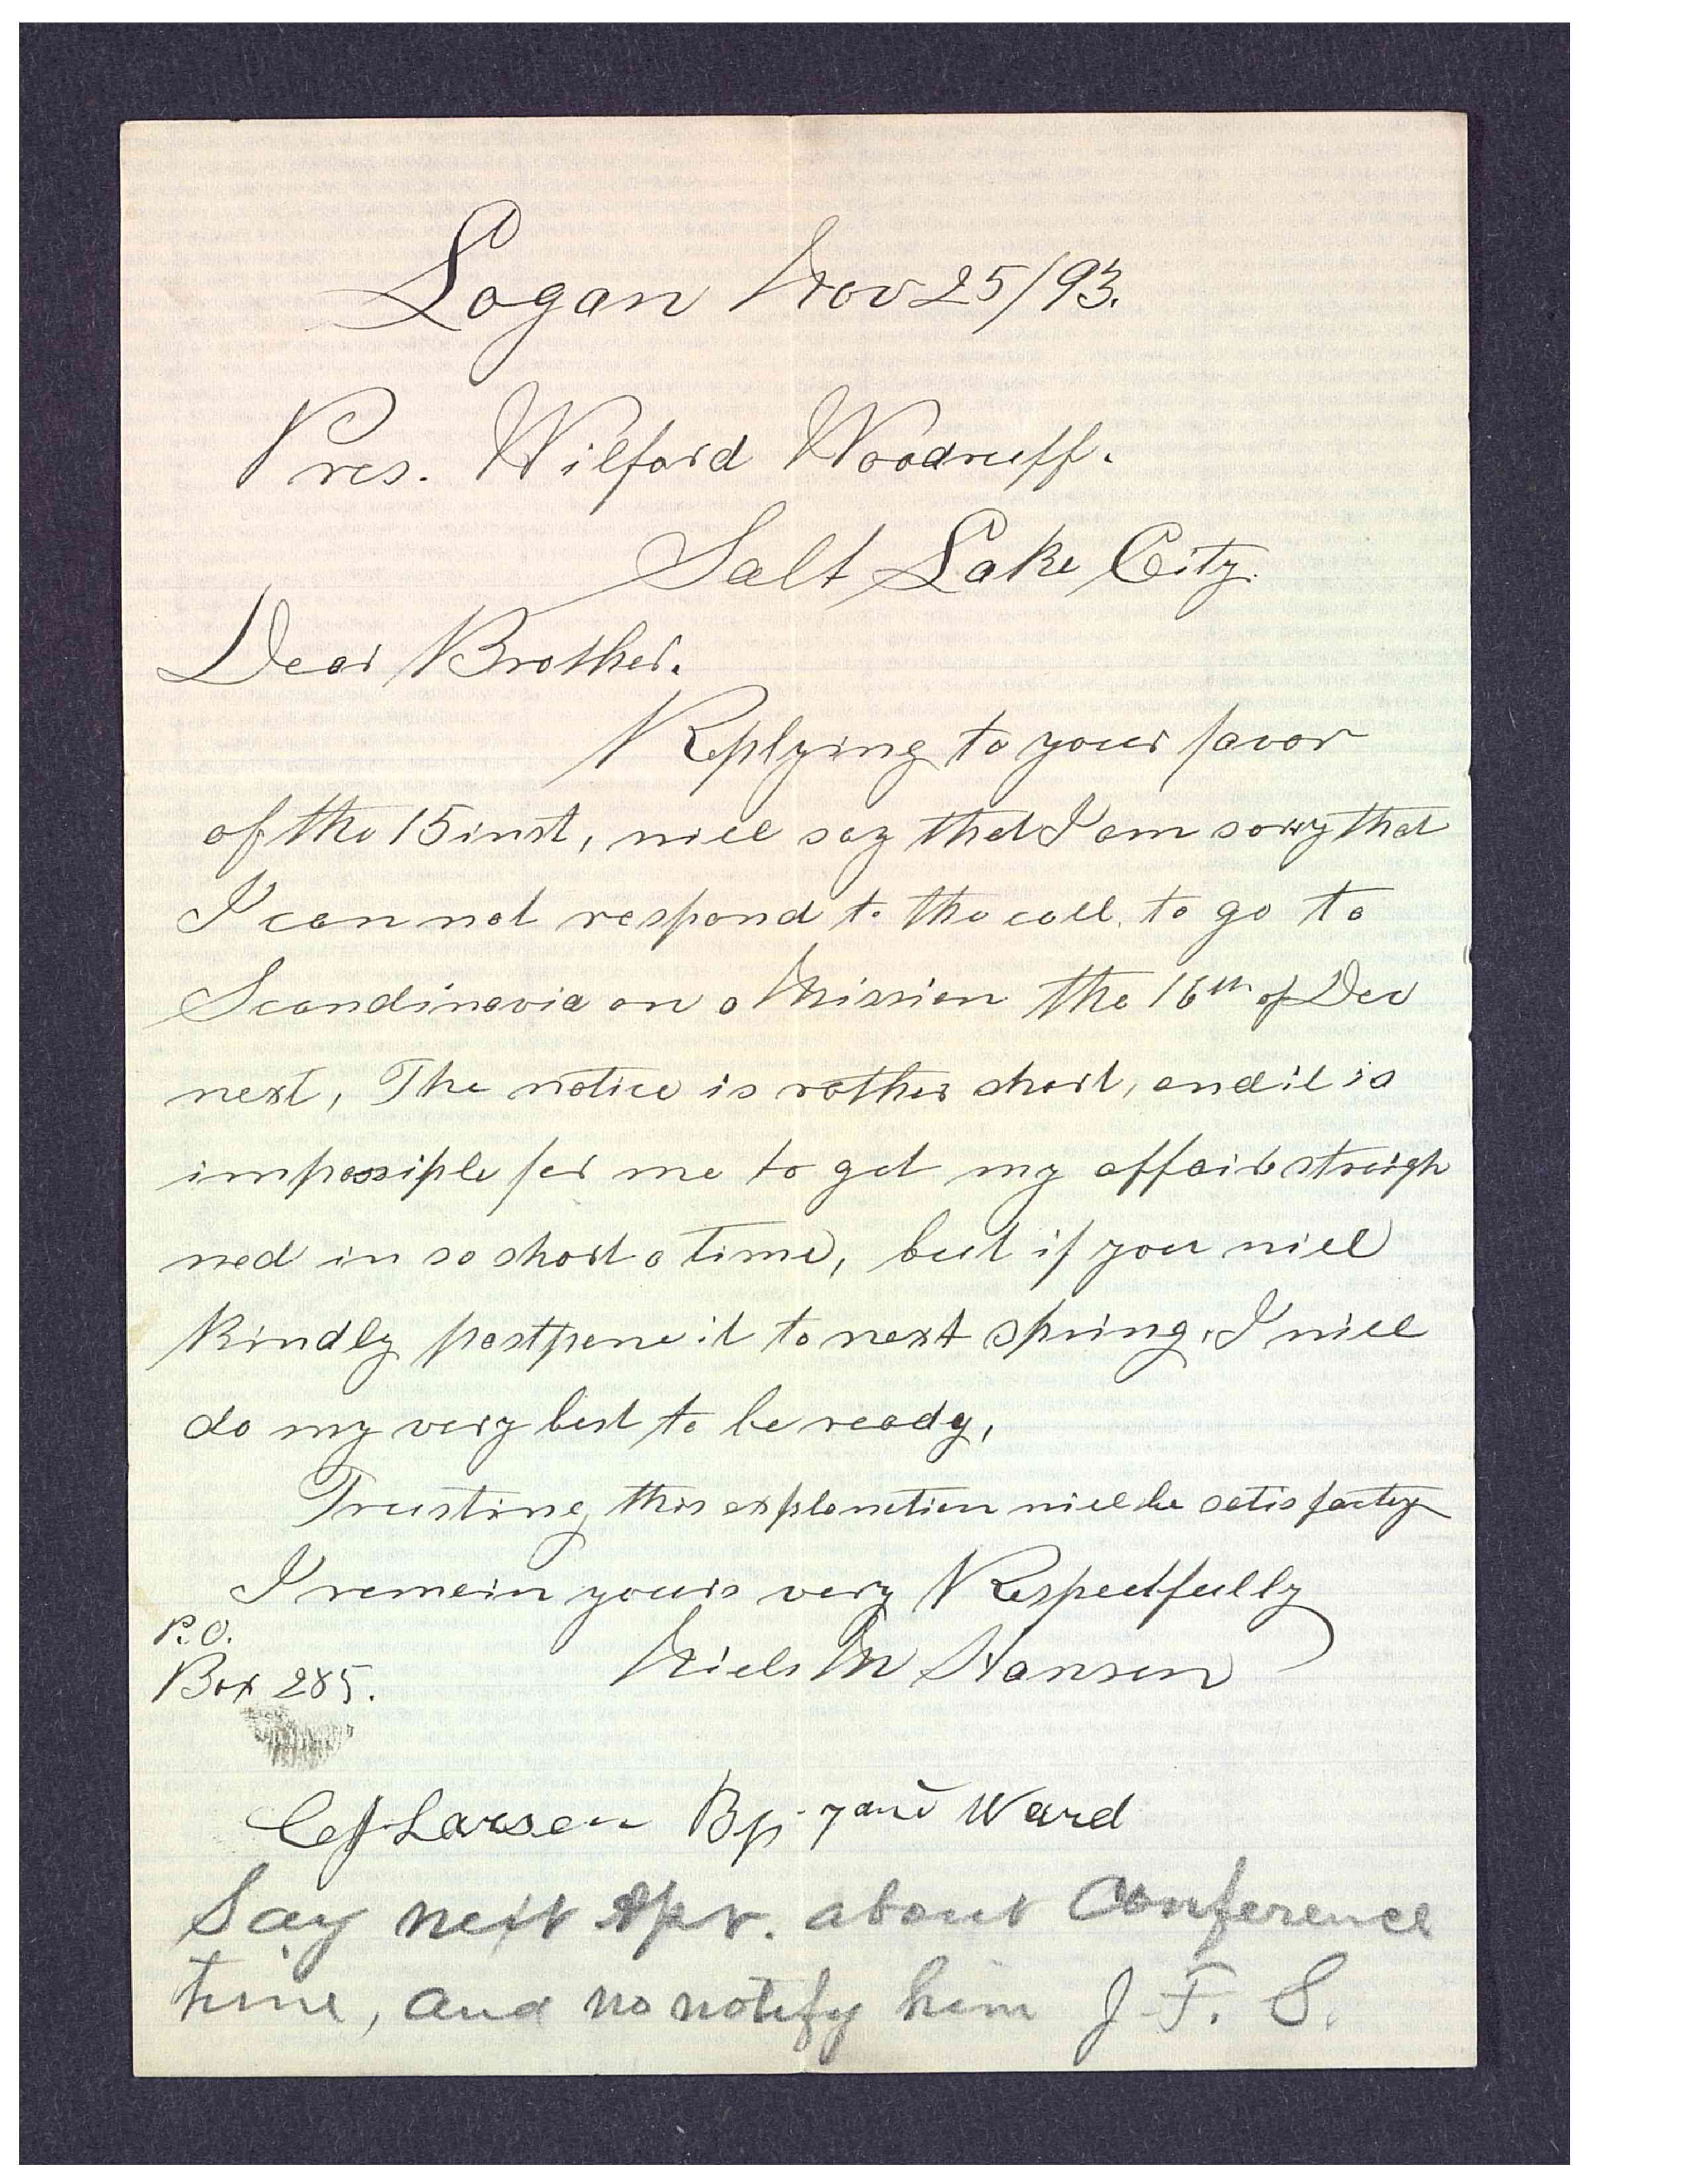 Logan Nov 25/93.
Pres. Wilford Woodruff.
Salt Lake City.
Dear Brother.
Replying to your favor
of the 15 inst, will say that I am sorry that
I can not respond to the call, to go to
Scandinavia on a Mission the 16th of Dec
next, The notice is rather short, and it is
impossiple for me to get my affairs streigh
ned in so short a time, but if you will
Kindly postpone it to next spring, I will
do my very best to be ready,
Trusting this explanation will be satisfacty
I remain yours very Respectfully
P.O.
Box 285.
Niels M Hansen
C J Larsen Bp 7 Ward
Say next Apr. about Conference
time, and so notify him J. F. S.